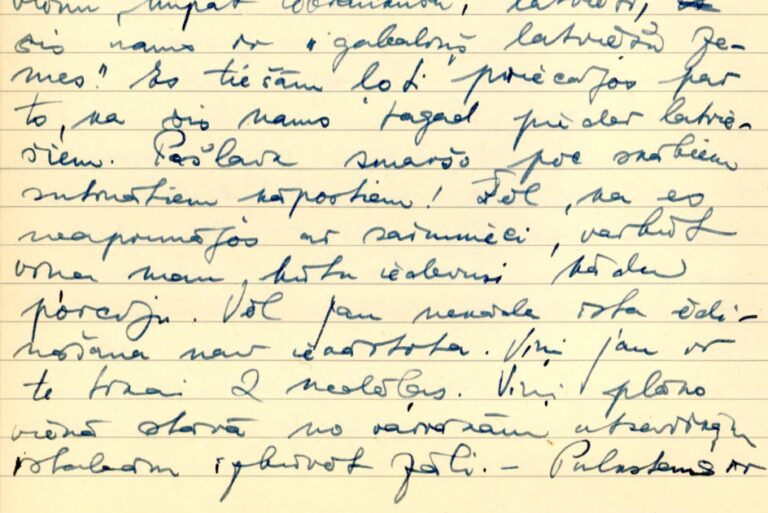 latvieši,
šis nams ir "gabaliņš latviešu ze-
mes." Es tiešām ļoti priecājos par
to, ka šis nams tagad pieder latvie-
šiem. Pašlaik smaržo pēc skābiem
sutinātiem kāpostiem! Žēl, ka es
neaprunājos ar saimnieci, varbūt
viņa man būtu iedevusi kādu
porciju. Vēl jau nekāda īsta ēdi-
nāšana nav iekārtota. Viņi jau ir
te tikai 2 nedēļas. Viņi plāno
vienā stāvā no vairākām atsevišķām
istabām izbūvēt zāli. – Pulkstens ir